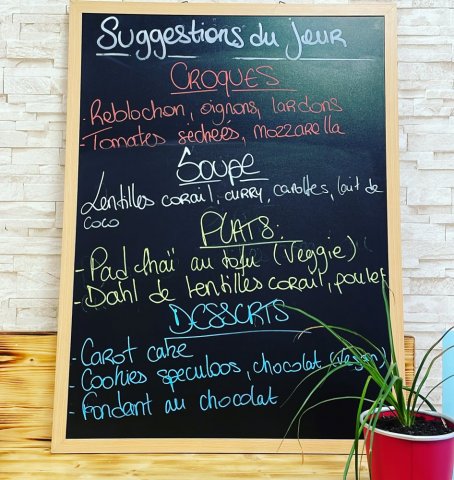 Suggestions du jour
CROQUES
- Reblochon, oignons, lardons
- Tomates séchées, mozzarella
Soupe
Lentilles corail, curry, carottes, lait de
coco
PLATS.
- Pad thaï au tofu (Veggie)
- Dahl de lentilles corail, poulet
DESSERTS
- Carot cake
- Cookies speculoos, chocolat (Vegan)
- Fondant au chocolat